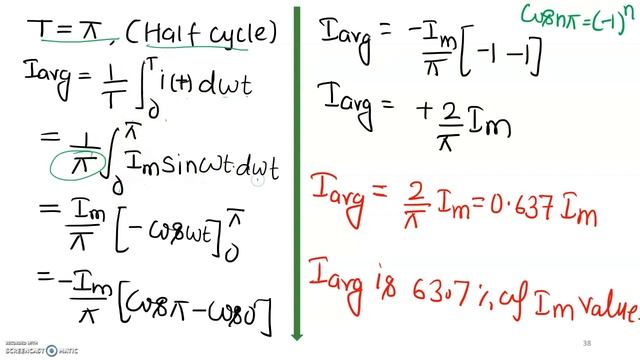 T = π, (Half cycle)
Iavg = 1/T ∫₀ᵀ i(t) dωt
= 1/π ∫₀^π Im sinωt·dωt
= Im/π [-cosωt]₀^π
= -Im/π [cosπ - cos0]
cosnπ = (-1)ⁿ
Iavg = -Im/π [-1 -1]
Iavg = +2/π Im
Iavg = 2/π Im = 0.637 Im
Iavg is 63.7% of Im value.
RECORDED WITH
SCREENCAST-O-MATIC
38